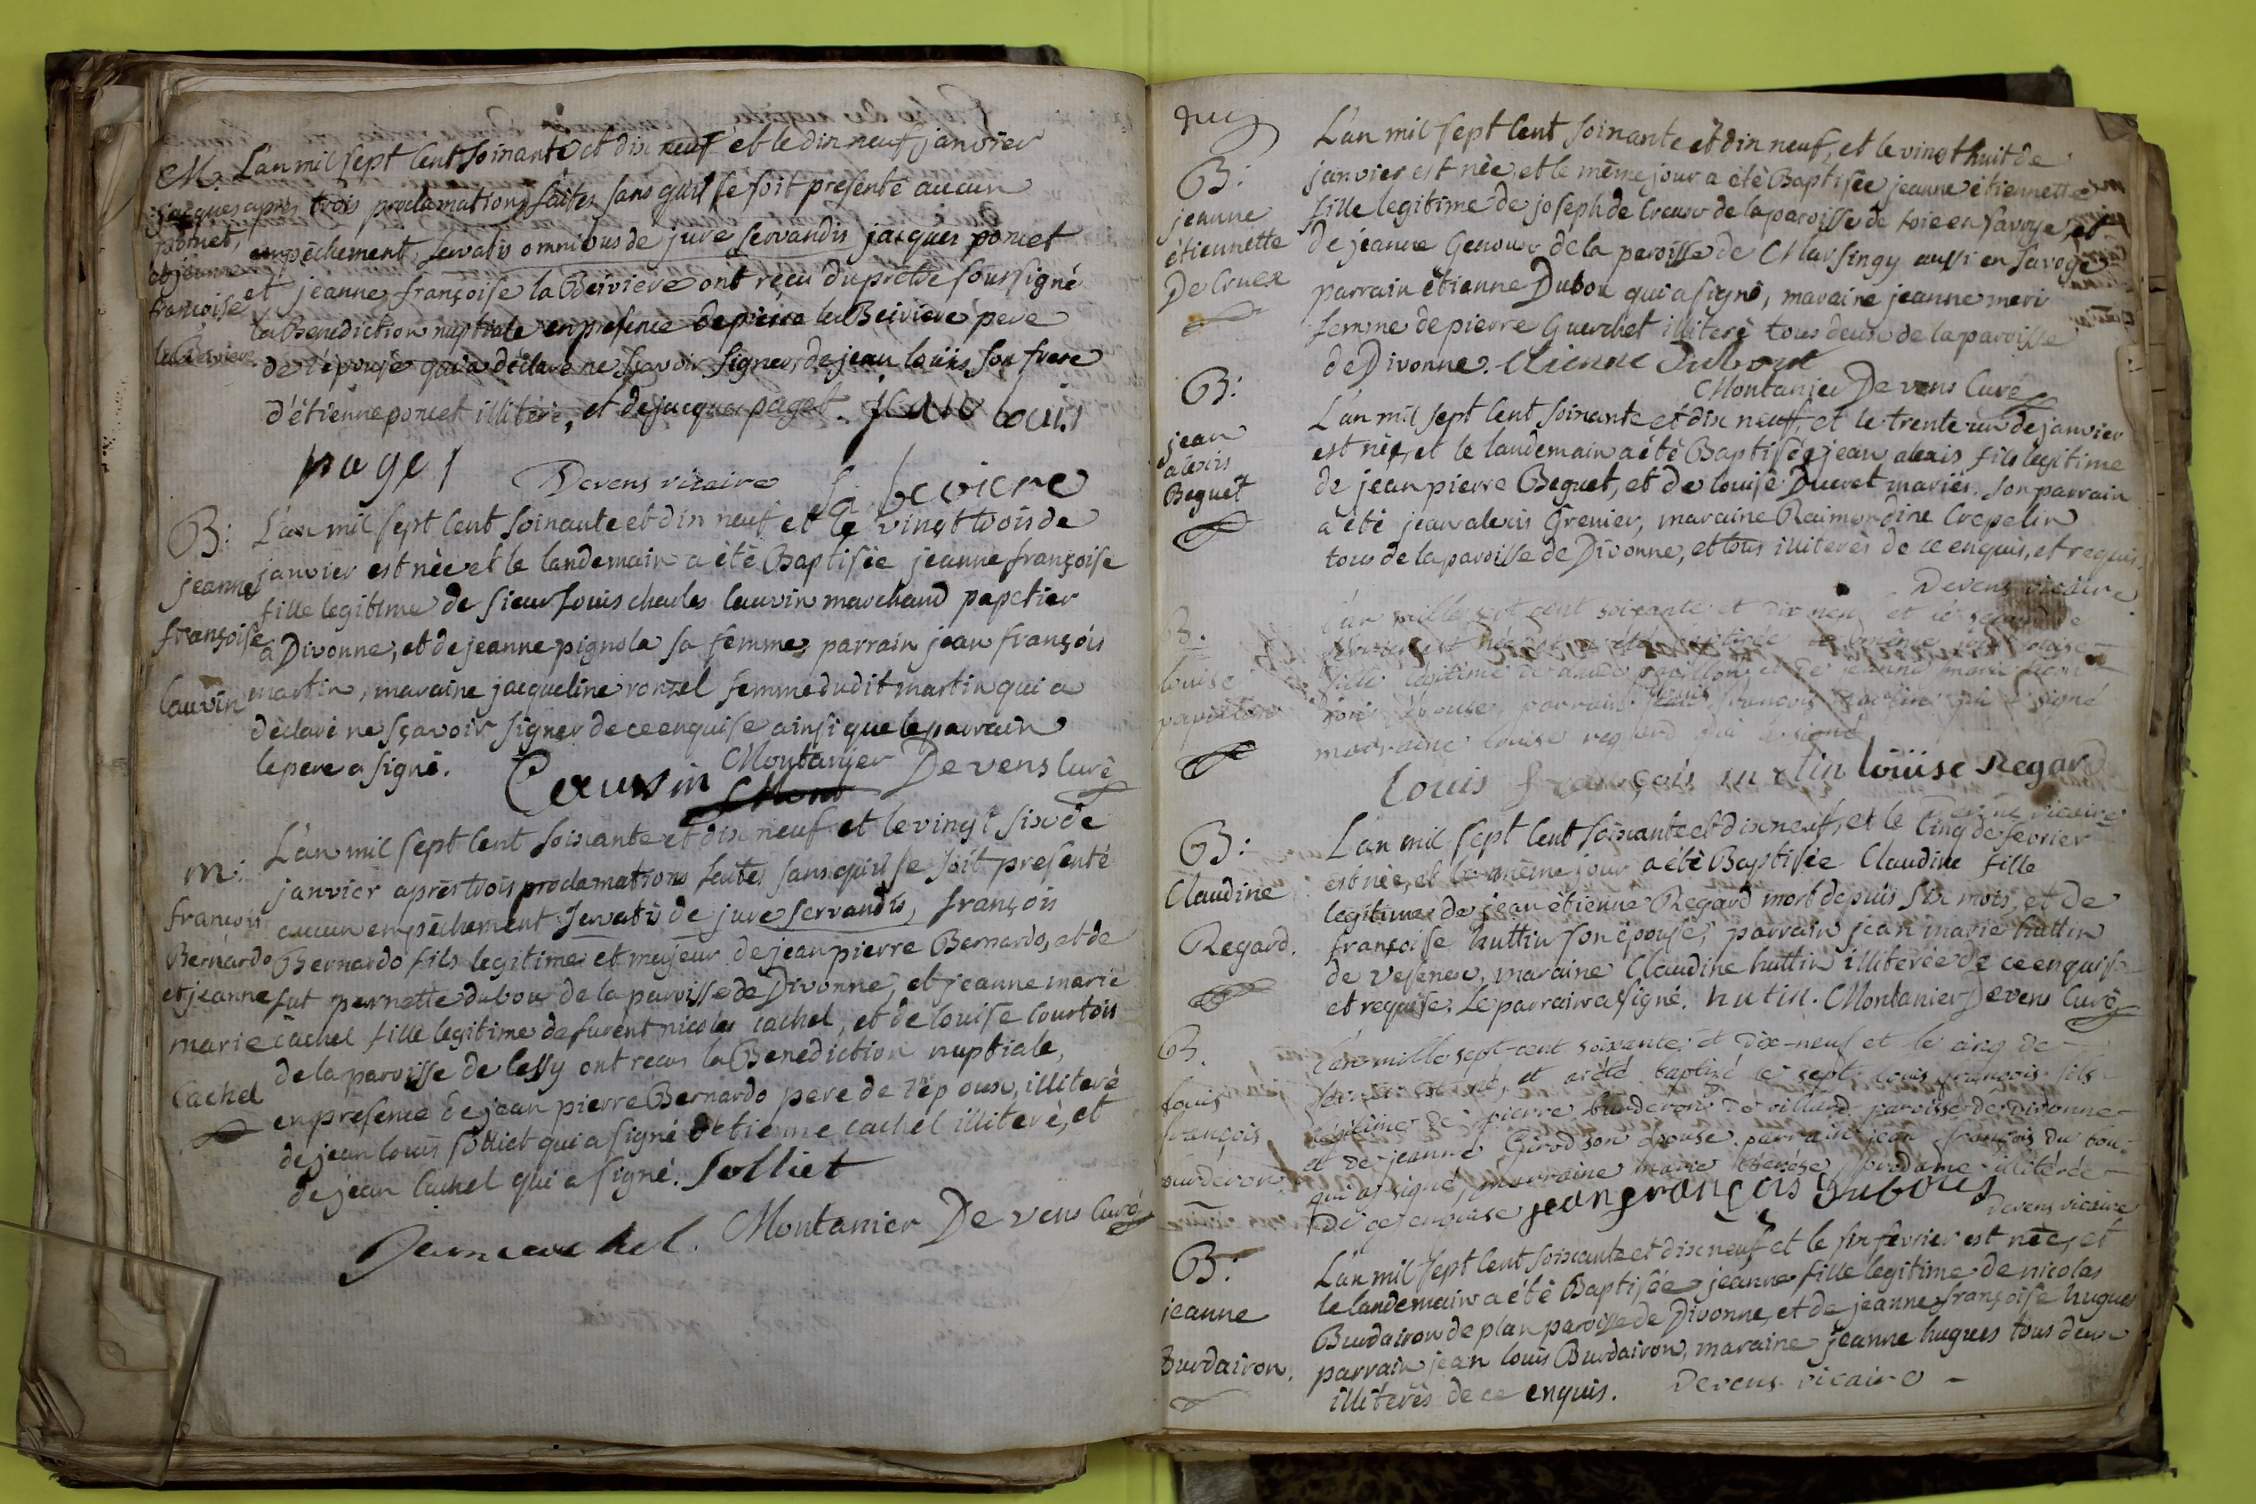 M. L'an mil sept cent soinante et dix neuf et le din neuf janvier
jacques après trois proclamations faites sans qu'il se soit presenté aucun
poncet, empêchement, servatis omnibus de jure servandis jacques poncet
et jeanne et jeanne françoise la Beiviere ont reçu du prêtre soussigné
francoise la Benediction nuptiale en presence de pierre la Beiviere pere
la Beviere de l'épouse qui a déclaré ne sçavoir signer, de jean louis son frere
d'étienne poncet illiteré, et de jacques paget. jean louis
page
Devens vicaire la beviere
B: L'an mil sept cent soinante et din neuf et le vingt trois de
jeanne janvier est née et le landemain a été Baptisée jeanne françoise
fille legitime de sieur Louis charles lauvin marchand papetier
françoise a Divonne, et de jeanne pignola sa femme, parrain jean françois
lauvin martin, maraine jacqueline ronzel femme dudit martin qui a
déclaré ne sçavoir signer de ce enquise ainsi que le parrain
le pere a signé. Cauvin Montanier De vens Curé
m: L'an mil sept cent soixante et dix neuf et le vingt six de
janvier après trois proclamations faites sans qu'il se soit presenté
françois aucun empêchement servatis de jure servandis, françois
Bernardo Bernardo fils legitime et majeur de jean pierre Bernardo, et de
et jeanne fut pernette dubou de la paroisse de Divonne, et jeanne marie
marie cachel fille legitime de furent nicolas cachel, et de louise Courtois
de la paroisse de Cessy ont recus la Benediction nuptiale,
Cachel en presence de jean pierre Bernardo pere de l'époux, illiteré
de jean louis solliet qui a signé d'etienne cachel illiteré, et
de jean cachel qui a signé. Solliet
Jean cachel. Montanier De vens Curé
L'an mil sept cent soinante et din neuf, et le vingt huit de
B: janvier est née, et le même jour a été Baptisée jeanne étiennette
jeanne fille legitime de joseph de Creux de la paroisse de toire en savoye et
étiennette de jeanne Genoux de la paroisse de Marsingy aussi en Savoye
De Cruex parrain étienne Dubou qui a signé, maraine jeanne meri
femme de pierre Guerchet illiteré tous deux de la paroisse
de Divonne. etienne Dubout
B: Montanier De vens Curé
L'an mil sept cent soinante et dix neuf, et le trente un de janvier
jean est né, et le landemain a été Baptisé jean alexis fils legitime
alexis de jean pierre Beguet, et de louise Ducret mariés. son parrain
Beguet a été jean alexis Grenier, maraine Raimondine Crepelin
tous de la paroisse de Divonne, et tous illiterés de ce enquis, et requis.
Devens vicaire
B. L'an mille sept cent soixante et dix neuf et le second de
louise fille légitime papillon et de jeanne marie
épouse, parrain louis françois martin qui a signé
marraine louise regard qui a signé
louis françois martin louise Regard
Devens vicaire
B: L'an mil sept cent soixante et dix neuf, et le cinq de fevrier
Claudine est née, et le même jour a été Baptisée Claudine fille
legitime de jean étienne Regard mort depuis six mois, et de
Regard. françoise huttin son épouse, parrain jean marie huttin
de Vesenex, maraine Claudine huttin illiterée de ce enquise
et requise. Le parrain a signé. hutin. Montanier Devens Curé
B. L'an mille sept-cent soixante, et dix-neuf et le cinq de
louis fevrier est né, et a été baptizé le sept louis françois fils
françois légitime de pierre burderon de villard paroisse de Divonne
et de jeanne Girod son épouse. parrain jean françois du bou
burderon qui a signé, marraine marie therèse prodame illitérée
de ce enquise jean françois Dubout
devens vicaire
B: L'an mil sept cent soixante et dix neuf et le six fevrier est née, et
le landemain a été Baptisée jeanne fille legitime de nicolas
jeanne Burdairon de plan paroisse de Divonne, et de jeanne françoise hugues
Burdairon. parrain jean louis Burdairon, maraine jeanne hugues tous deux
illiterés de ce enquis. Devens vicaire